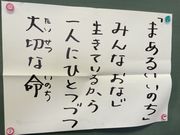 「まあるいいのち」
みんなおなじ
生きているから
一人にひとつづつ
大切な命
たいせつ
いのち